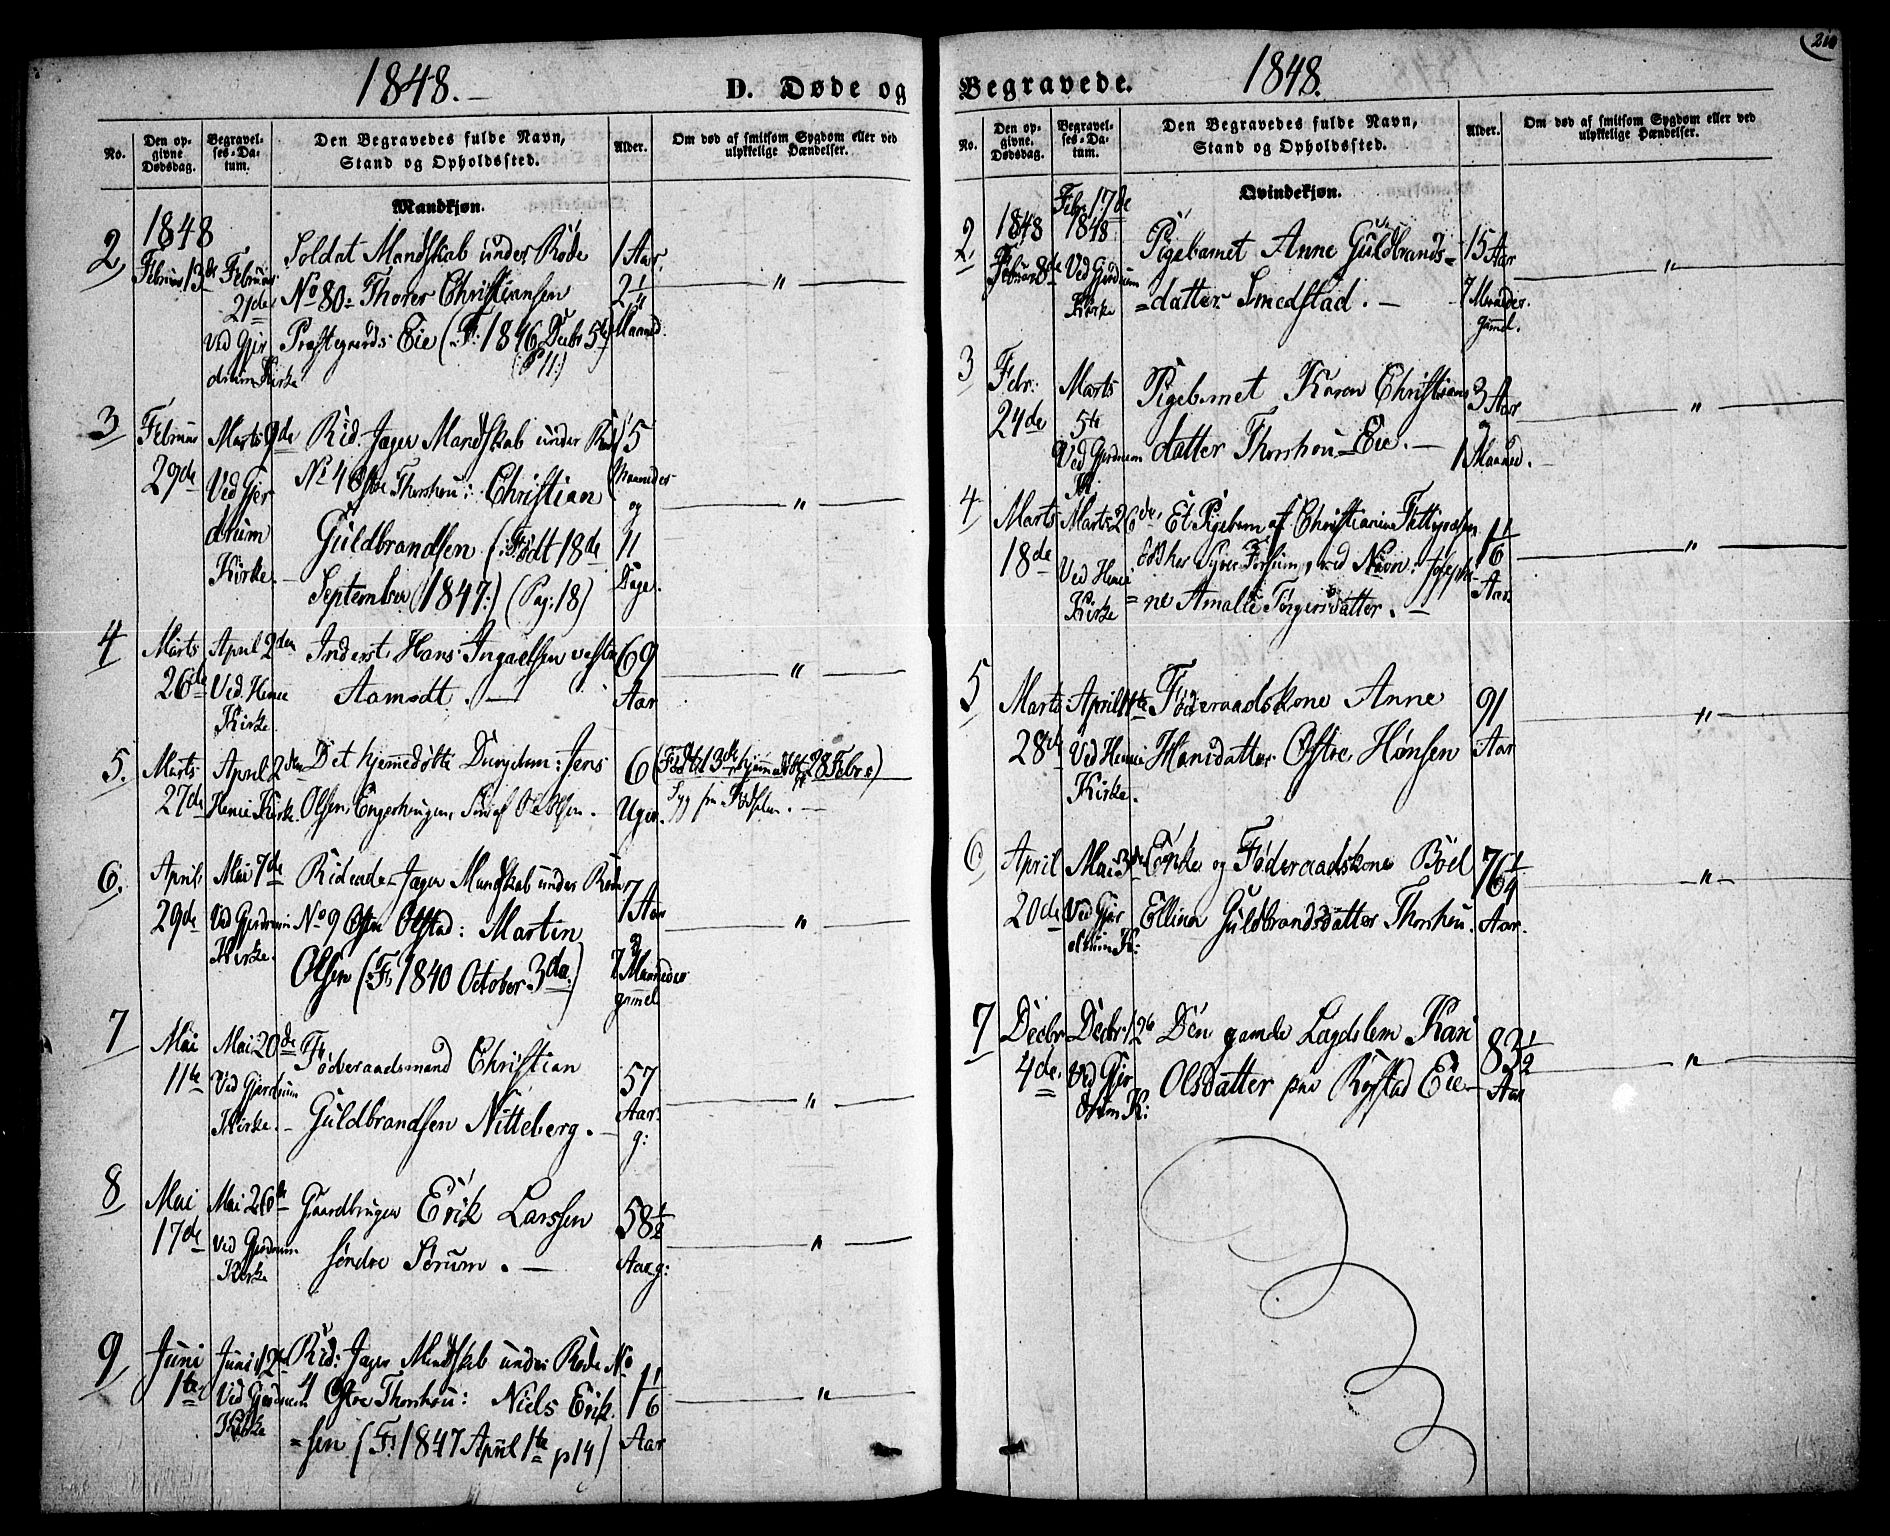 1848.
D. Døde og
No.
Den op-
givne
Dødsdag.
Begravel-
ses-Da-
tum.
Den Begravedes fulde Navn,
Stand og Opholdssted.
Alder.
Om død af smitsom Sygdom eller ved
ulykkelige Hændelser.
Mandkjøn.
2
1848
Februar 13de
Februar
21de
Ved Gjer
drum Kirke
Soldat Mandskab under Rode
No 80 = Thorer Christiansen
Præstegaards Eie (F: 1846 Decbr 5te
(P 11:)
1 Aar
2½
Maaned
"
3
Februar
29de
Marts 9de
Ved Gjer
drum
Kirke.
Rid. Jæger Mandskab under Rode
No 4 Østre Thorshou: Christian
Guldbrandsen (:Født 18de
September 1847:) (Pag: 18)
5
Maaneder
og
11
Dage.
"
4
Marts
26de
April 2den
Ved Henie
Kirke
Inderst. Hans Ingaelsen vestre
Aamodt.
69
Aar
"
5.
Marts
27de
April 2den
Henie Kirke.
Det hjemmedøbte Drengebarn: Jens
Olsen, Engerhaugen, Søn af Ole Olsen.
6
Uger.
(Født 13de hjemmedøbt 28 Febr:)
Syg fra Fødselen.
6.
April
29de
Mai 7de
Ved Gjerdrum
Kirke.
Ridende Jæger Mandskab under Rode
No 9 Østre Olstad: Martin
Olsen (:F: 1840 October 3die:)
7 Aar
7 Maaneder
gammel
"
7
Mai
11te
Mai 20de
Ved Gjerdrum
Kirke.
Føderaadsmand Christian
Guldbrandsen Nitteberg.
57
Aar
g:
"
8
Mai
17de
Mai 26de
Ved Gjerdrum
Kirke
Gaardbruger Erik Larssen
søndre Sørum.
58½
Aar g:
"
9
Juni
1te
Juni 12te
Ved Gjerdrum
Kirke
Rid: Jæger Mandskab under Rode No
4 Østre Thorshou: Niels Erik
=sen (F: 1847 April 1te p 14)
1 1/6
Aar
"
Begravede.
1848.
210
No.
Den op-
givne
Dødsdag.
Begravel-
ses-Da-
tum.
Den Begravedes fulde Navn,
Stand og Opholdssted.
Alder.
Om død af smitsom Sygdom eller ved
ulykkelige Hændelser.
Qvindekjøn.
2
1848
Februar 8de
Febr. 17de
1848
Ved Gjerdrum
Kirke
Pigebarnet Anne Guldbrands=
=datter Smedstad.
15 Aar
7 Maaneder
gammel.
"
3
Febr:
24de
Marts
5te
Ved Gjerdrum
K:
Pigebarnet Karen Christians
datter Thorshou Eie.
3 Aar
1 Maaned.
"
4
Marts
18de
Marts 26de
Ved Henie
Kirke
Et Pigebarn af Christianine
ved Navn: Josephi-
=ne Amalie Torgersdatter.
1 1/6
Aar
"
5
Marts
28de
April
Ved Henie
Kirke.
Føderaadskone Anne
Hansdatter Østre Hønsen
91
Aar
"
6
April
20de
Mai 3de
Ved Gjer
drum K:
Enke og Føderaadskone Boel
Ellina Guldbrandsdatter Thorshou.
76¼
Aar.
"
7
Decbr
4de.
Decbr 12te
Ved Gjer
drum K:
Den gamle Lægdslem Kari
Olsdatter paa Rystad Eie
83½
Aar
"